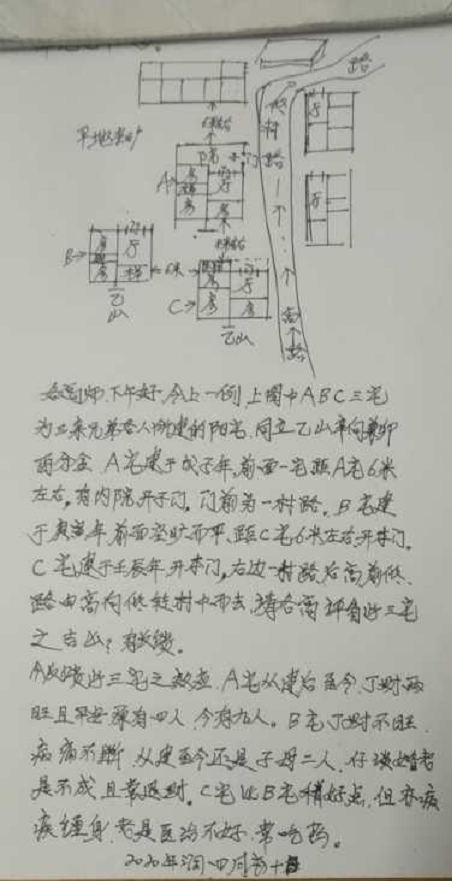 路
6米左右
村
路
平地类
院
门
A→
房
厅
B→
6米
C→
乙山
乙山
高
路
下午好,今上一例,上图中ABC三宅
为三亲兄弟各人所建的阳宅,同立乙山辛向兼卯
酉分金,A宅建于戊子年,前面一宅距A宅6米
左右,有内院开子门,门前为一村路。B宅建
于庚寅年,前面空旷而平,距C宅6米左右,开门。
C宅建于壬辰年,开门,右边一村路,后高前低,
路由高向低往村中而去,请各高评负此三宅
之吉凶?有反馈。
今反馈此三宅之效应,A宅从建后至今,丁财两
旺且平安,原有四人,今有九人。B宅丁财不旺,
病痛不断,从建至今还是子母二人,仔谈婚老
是不成且常退财。C宅比B宅稍好点,但亦病
疾缠身,老是医治不好,常吃药。
2020年闰四月